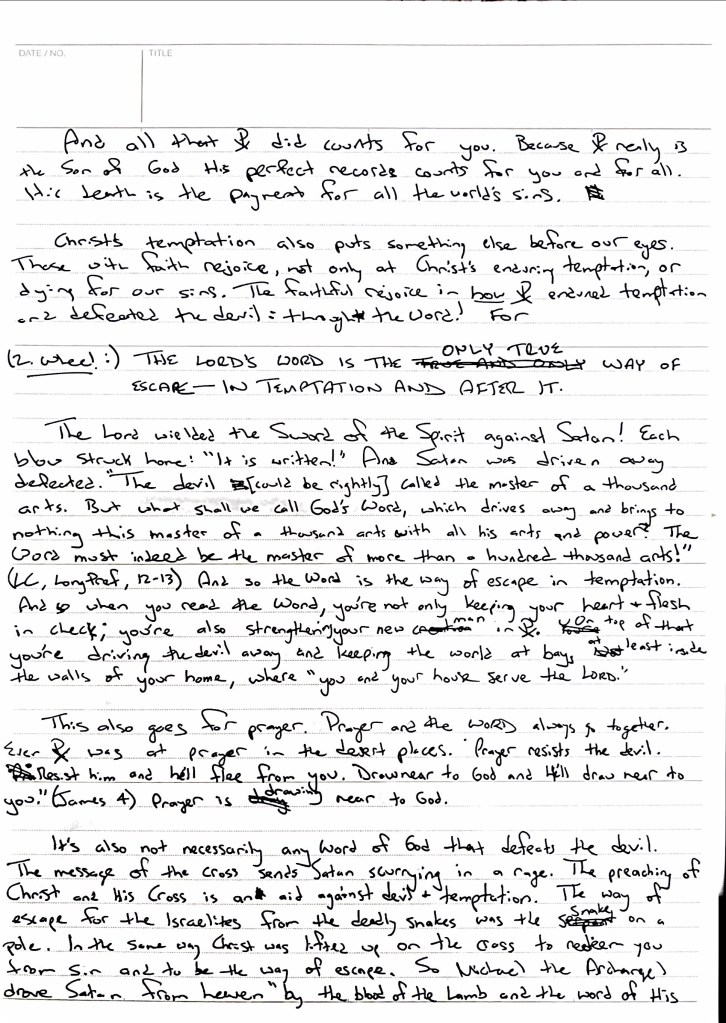 DATE / NO. TITLE
And all that ☧ did counts for you. Because ☧ really is
the Son of God His perfect records counts for you and for all.
His death is the payment for all the world's sins.
Christ's temptation also puts something else before our eyes.
Those with faith rejoice, not only at Christ's enduring temptation, or
dying for our sins. The faithful rejoice in how ☧ endured temptation
and defeated the devil: through the Word! For
(2. wheel:) THE LORD'S WORD IS THE TRUE AND ONLY ONLY TRUE WAY OF
ESCAPE — IN TEMPTATION AND AFTER IT.
The Lord wielded the Sword of the Spirit against Satan! Each
blow struck home: "It is written!" And Satan was driven away
defeated. "The devil [could be rightly] called the master of a thousand
arts. But what shall we call God's Word, which drives away and brings to
nothing this master of a thousand arts with all his arts and power? The
Word must indeed be the master of more than a hundred thousand arts!"
(LC, Long Pref, 12-13) And so the Word is the way of escape in temptation.
And so when you read the Word, you're not only keeping your heart + flesh
in check; you're also strengthening your new man in ☧. On top of that
you're driving the devil away and keeping the world at bay, at least inside
the walls of your home, where "you and your house serve the LORD."
This also goes for prayer. Prayer and the WORD always go together.
Ever ☧ was at prayer in the desert places. Prayer resists the devil.
"Resist him and he'll flee from you. Draw near to God and He'll draw near to
you." (James 4) Prayer is drawing near to God.
It's also not necessarily any Word of God that defeats the devil.
The message of the cross sends Satan scurrying in a rage. The preaching of
Christ and His Cross is an aid against devil + temptation. The way of
escape for the Israelites from the deadly snakes was the serpent snake on a
pole. In the same way Christ was lifted up on the cross to redeem you
from sin and to be the way of escape. So Michael the Archangel
drove Satan from heaven "by the blood of the Lamb and the word of His